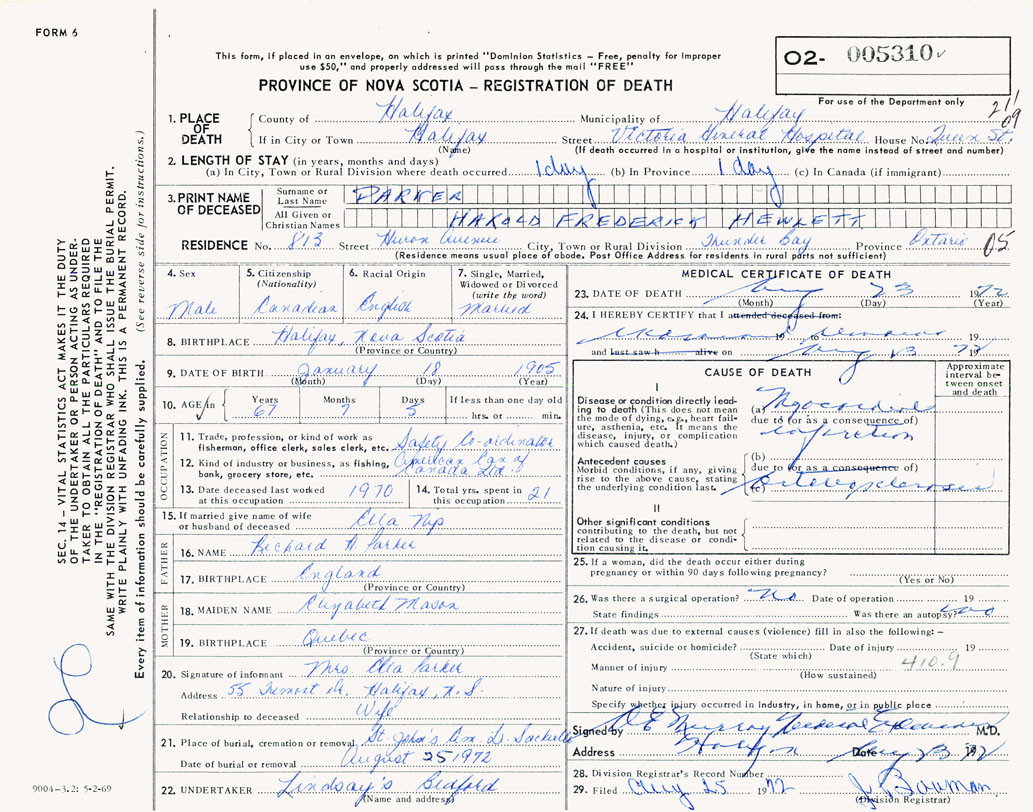 FORM 6
This form, if placed in an envelope, on which is printed "Dominion Statistics – Free, penalty for improper
use $50," and properly addressed will pass through the mail "FREE"
PROVINCE OF NOVA SCOTIA – REGISTRATION OF DEATH
O2- 005310
For use of the Department only
1. PLACE OF DEATH
County of Halifax Municipality of Halifax
If in City or Town Halifax Street Victoria General Hospital House No. Queen St.
(Name) (If death occurred in a hospital or institution, give the name instead of street and number)
2. LENGTH OF STAY (in years, months and days)
(a) In City, Town or Rural Division where death occurred 1 day (b) In Province 1 day (c) In Canada (if immigrant)
3. PRINT NAME OF DECEASED
Surname or Last Name PARKER
All Given or Christian Names HAROLD FREDERICK HEWLETT
RESIDENCE No. 813 Street Huron Avenue City, Town or Rural Division Thunder Bay Province Ontario 05
(Residence means usual place of abode. Post Office Address for residents in rural parts not sufficient)
4. Sex
Male
5. Citizenship (Nationality)
Canadian
6. Racial Origin
English
7. Single, Married, Widowed or Divorced (write the word)
Married
8. BIRTHPLACE Halifax, Nova Scotia
(Province or Country)
9. DATE OF BIRTH January 18 1905
(Month) (Day) (Year)
10. AGE in Years Months Days If less than one day old
67 7 5 hrs. or min.
OCCUPATION
11. Trade, profession, or kind of work as fisherman, office clerk, sales clerk, etc. Safety Co-ordinator
12. Kind of industry or business, as fishing, bank, grocery store, etc. American Can of Canada Ltd.
13. Date deceased last worked at this occupation 1970
14. Total yrs. spent in this occupation 21
15. If married give name of wife or husband of deceased Ella Nip
FATHER
16. NAME Richard H. Parker
17. BIRTHPLACE England
(Province or Country)
MOTHER
18. MAIDEN NAME Elizabeth Mason
19. BIRTHPLACE Quebec
(Province or Country)
20. Signature of informant Mrs. Ella Parker
Address 55 Tremont Dr. Halifax, N.S.
Relationship to deceased Wife
21. Place of burial, cremation or removal St. John's Cem. L. Sackville
Date of burial or removal August 25 1972
22. UNDERTAKER Lindsay's Bedford
(Name and address)
MEDICAL CERTIFICATE OF DEATH
23. DATE OF DEATH Aug 23 1972
(Month) (Day) (Year)
24. I HEREBY CERTIFY that I attended deceased from:
19 to 19
and last saw h alive on Aug 23 72 19
CAUSE OF DEATH
Approximate interval between onset and death
I
Disease or condition directly leading to death (This does not mean the mode of dying, e.g., heart failure, asthenia, etc. It means the disease, injury, or complication which caused death.)
(a) Myocardial
due to (or as a consequence of)
infarction
Antecedent causes
Morbid conditions, if any, giving rise to the above cause, stating the underlying condition last.
(b)
due to (or as a consequence of)
(c) Arteriosclerosis
II
Other significant conditions contributing to the death, but not related to the disease or condition causing it.
25. If a woman, did the death occur either during pregnancy or within 90 days following pregnancy?
(Yes or No)
26. Was there a surgical operation? No Date of operation 19
State findings Was there an autopsy? No
27. If death was due to external causes (violence) fill in also the following: –
Accident, suicide or homicide? Date of injury 19
(State which)
Manner of injury 410.9
(How sustained)
Nature of injury
Specify whether injury occurred in Industry, in home, or in public place
Signed by D E Murray Medical Examiner M.D.
Address Halifax Date Aug 23 1972
28. Division Registrar's Record Number
29. Filed Aug 25 1972
(Division Registrar)
SEC. 14 – VITAL STATISTICS ACT MAKES IT THE DUTY
OF THE UNDERTAKER OR PERSON ACTING AS UNDER-
TAKER TO OBTAIN ALL THE PARTICULARS REQUIRED
IN THE "REGISTRATION OF DEATH" AND TO FILE THE
SAME WITH THE DIVISION REGISTRAR WHO SHALL ISSUE THE BURIAL PERMIT.
WRITE PLAINLY WITH UNFADING INK. THIS IS A PERMANENT RECORD.
Every item of information should be carefully supplied. (See reverse side for instructions.)
9004-3.2: 5-2-69